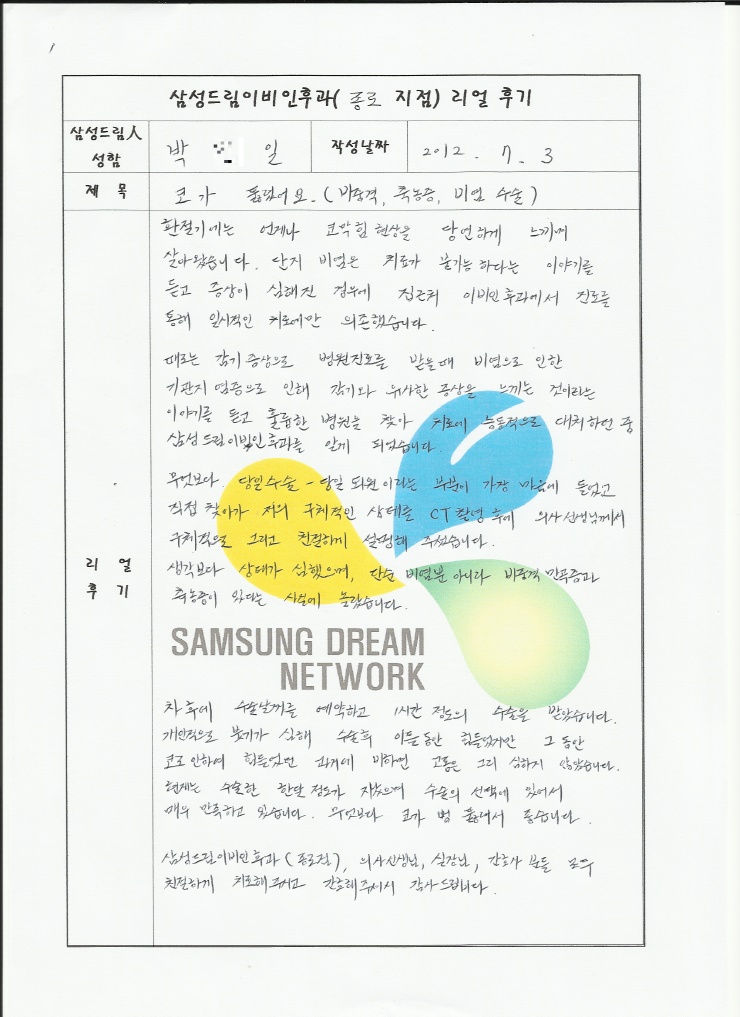 삼성드림이비인후과( 종로 지점) 리얼 후기
삼성드림人 성함
박 일
작성날짜
2012. 7. 3
제 목
코가 뚫렸어요. (비중격, 축농증, 비염 수술)
리 얼 후 기
환절기에는 언제나 코막힘 현상을 당연하게 느끼며
살아왔습니다. 단지 비염은 치료가 불가능하다는 이야기를
듣고 증상이 심해진 경우에 집근처 이비인후과에서 진료를
통해 일시적인 치료에만 의존했습니다.
때로는 감기 증상으로 병원진료를 받을때 비염으로 인한
기관지 염증으로 인해 감기와 유사한 증상을 느끼는 것이라는
이야기를 듣고 훌륭한 병원을 찾아 치료에 능동적으로 대처하던 중
삼성드림이비인후과를 알게 되었습니다.
무엇보다 당일수술 - 당일 퇴원이라는 부분이 가장 마음에 들었고
직접 찾아가 저의 구체적인 상태를 CT촬영 후에 의사선생님께서
구체적으로 그리고 친절하게 설명해 주셨습니다.
생각보다 상태가 심했으며, 단순 비염뿐 아니라 비중격 만곡증과
축농증이 있다는 사실에 놀랐습니다.
SAMSUNG DREAM
NETWORK
차후에 수술날짜를 예약하고 1시간 정도의 수술을 받았습니다.
개인적으로 붓기가 심해 수술후 이틀동안 힘들었지만 그 동안
코로 인하여 힘들었던 과거에 비하면 고통은 그리 심하지 않았습니다.
현재는 수술한 한달 정도가 지났으며 수술의 선택에 있어서
매우 만족하고 있습니다. 무엇보다 코가 뻥 뚫려서 좋습니다.
삼성드림이비인후과(종로점), 의사선생님, 실장님, 간호사 분들 모두
친절하게 치료해주시고 간호해주셔서 감사드립니다.